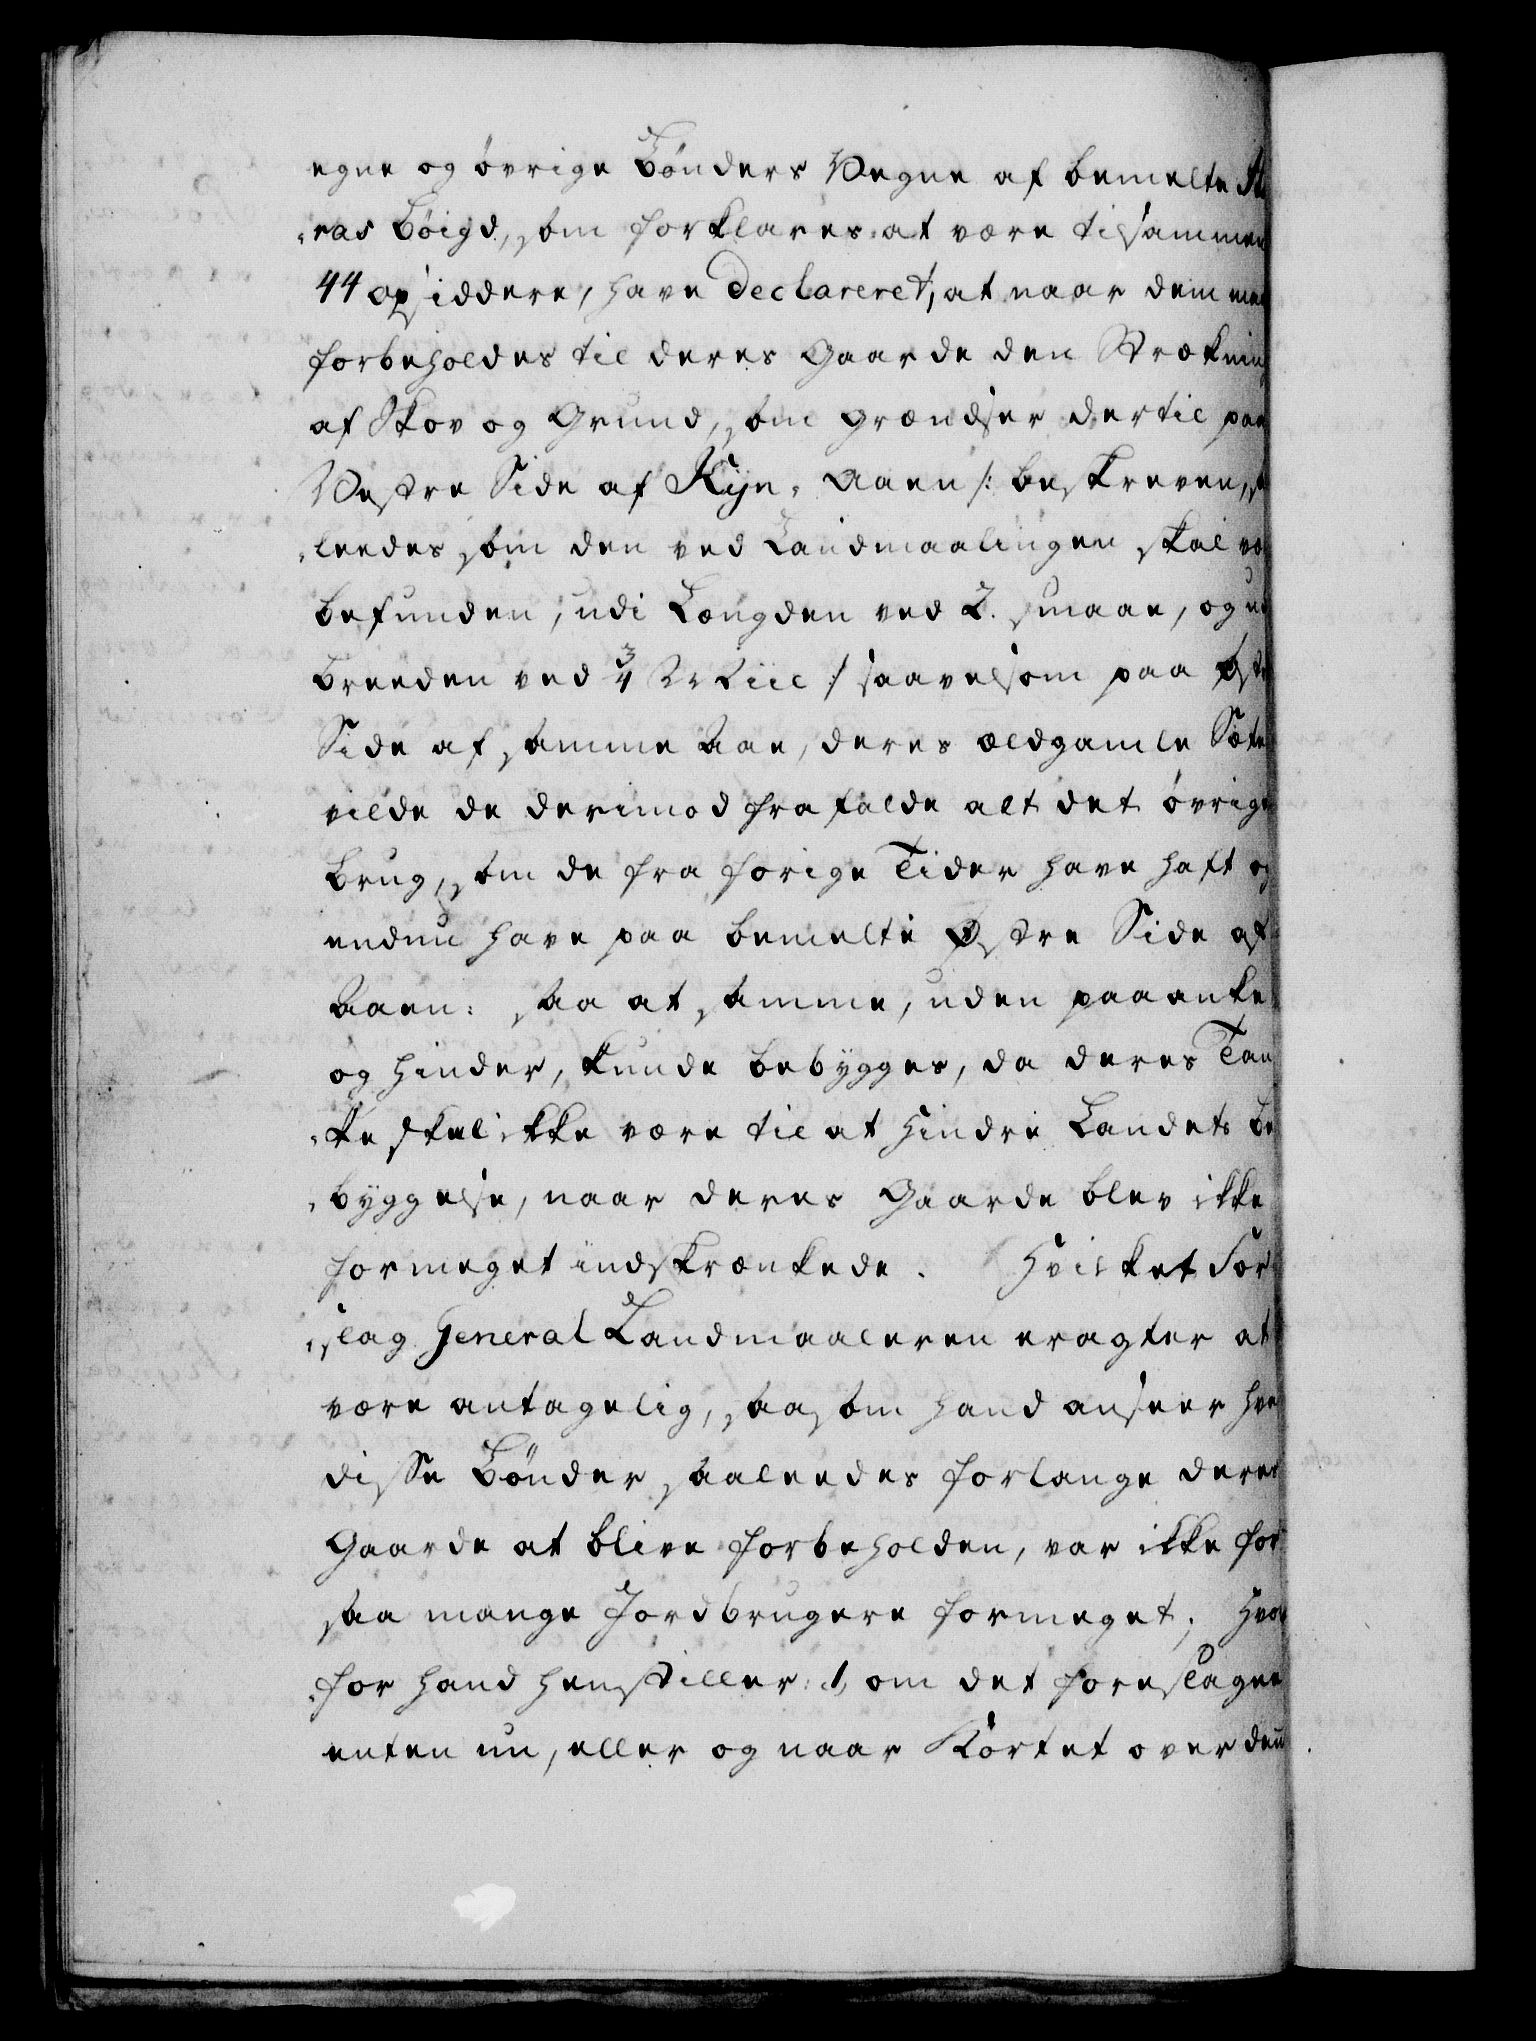 egne og øvrige Bønders Vegne af bemelte
„ras Bøigd, som forklares at være tilsammen
44 opsiddere, have Declareret, at naar dem
forbeholdes til deres Gaarde den Stræknin
af Skov og Grund, som grændser dertil paa
Vestre Side af Rÿe-Aaen /: beskreven,
„leedes som den ved Landmaalingen skal
befunden, udi Længden ved 2. smaae, og
Breeden ved ¾ Miil :/ saavelsom paa Østr
Side af samme Aae, deres ældgamle Sæte
vilde de derimod frafalde alt det øvrige
Brug, som de fra forige Tider have haft og
endnu have paa bemelte Østre Side af
Aaen: saa at samme, uden paaanke
og hinder, kunde bebÿgges, da deres Tan
„ke skal ikke være til at hindre Landets Be
„bÿggelse, naar deres Gaarde blev ikke
formeget indskrænkede. Hvilket For
„slag General Landmaaleren eragter at
være antagelig, saasom hand anseer hva
disse Bønder saaleedes forlange deres
Gaarde at blive forbeholden, var ikke for
saa mange Jordbrugere formeget; Hvor
„for hand henstiller: 1, om det foreslagne
enten nu, eller og naar Kortet over den